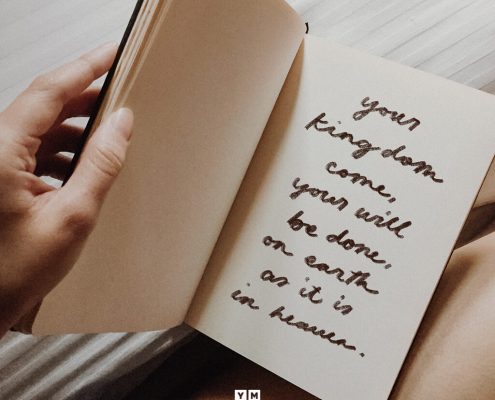 your
kingdom
come,
your will
be done,
on earth
as it is
in heaven.
YM